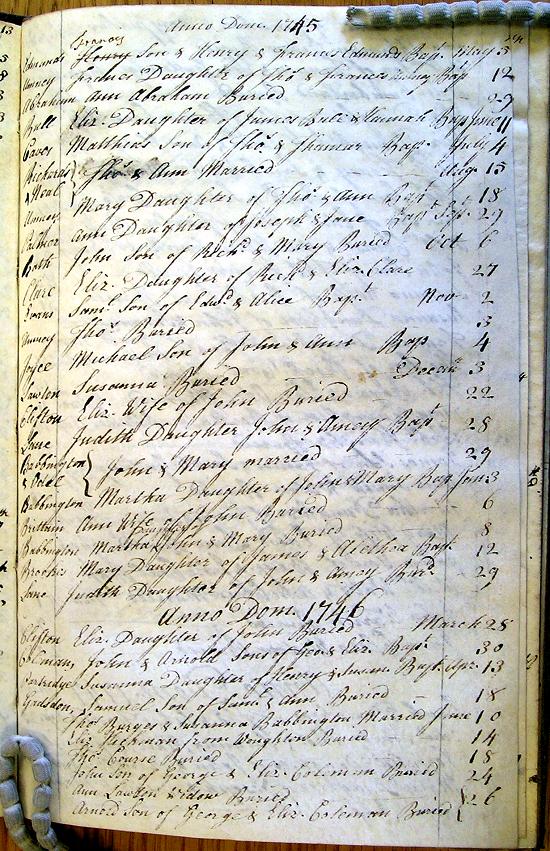 Anno Dom. 1745
Frances
Edmunds Henry Son of Henry & Frances Edmunds Bap. May 3
Amney Frances Daughter of Tho.s & Frances Amney Bap 12
Abraham Ann Abraham Buried 29
Bull Eliz. Daughter of James Bull & Hannah Bap June 11
Eaves Matthias Son of Tho.s & Thamar Bap. July 4
Richards & Neal } Tho.s & Ann Married Aug. 15
Amney Mary Daughter of Tho.s & Ann Bap.t 18
Palmer Ann Daughter of Joseph & Jane Bap.t Sep.t 29
John Son of Rich.d & Mary Buried Oct 6
Clare Eliz. Daughter of Rich.d & Eliz. Clare 27
Evans Sam.l Son of Edw.d & Alice Bap.t Nov 2
Amney Tho.s Buried 3
Joyce Michael Son of John & Ann Bap 4
Lawton Susanna Buried Decem 3
Clifton Eliz. Wife of John Buried 22
Lane Judith Daughter John & Amey Bap.t 28
Babbington & } John & Mary married 29
Babbington Martha Daughter of John & Mary Bap Jan 3
Brittain Ann Wife of John Buried 6
Daughter of
Babbington Martha John & Mary Buried 8
Brookes Mary Daughter of James & Alethea Bap.t 12
Lane Judith Daughter of John & Amey Bur.d 29
Anno Dom. 1746
Clifton Eliz. Daughter of John Buried March 28
Colman John & Arnold Sons of Geo & Eliz. Bap.t 30
Partridge Susanna Daughter of Henry & Susan. Bap.t Apr. 13
Gadsdon Samuel Son of Sam.l & Ann Buried 18
Tho.s Burges & Susanna Babbington Married June 10
Eliz. Hickman from Woughton Buried 14
Tho.s Course Buried 18
John Son of George & Eliz. Coleman Buried 24
Ann Lawton Widow Buried } 26
Arnold Son of George & Eliz. Coleman Buried